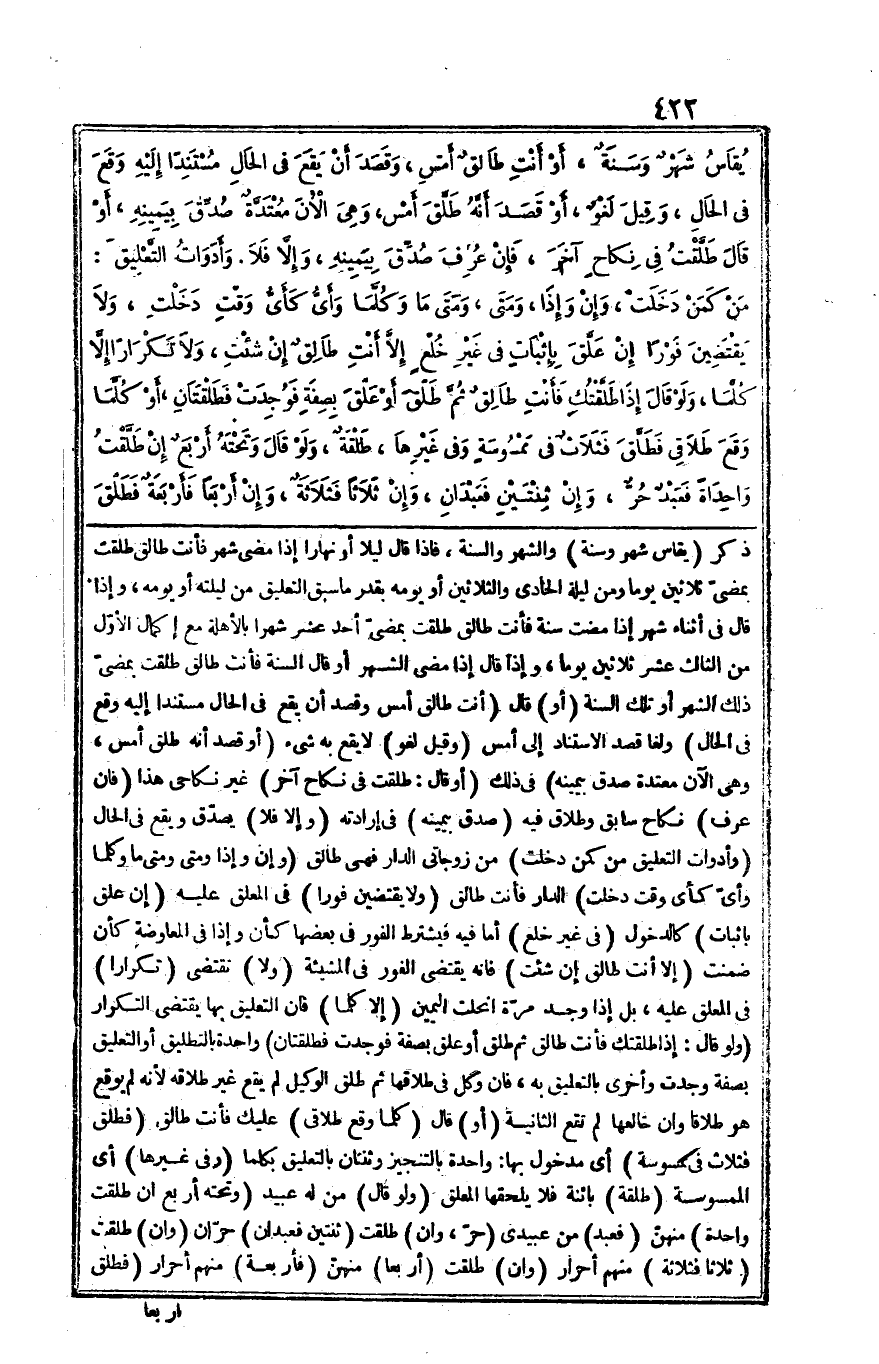 ٤٢٢
يُقَاسُ شَهْرٌ وَسَنَةٌ ، أَوْ أَنْتِ طَالِقٌ أَمْسِ ، وَقَصَدَ أَنْ يَقَعَ فِى الْحَالِ مُسْتَنِدًا إِلَيْهِ وَقَعَ
فِى الْحَالِ ، وَقِيلَ لَغْوٌ ، أَوْ قَصَدَ أَنَّهُ طَلَّقَ أَمْسِ، وَهِىَ الْآنَ مُعْتَدَّةٌ صُدِّقَ بِيَمِينِهِ ، أَوْ
قَالَ طَلَّقْتُ فِى نِكَاحٍ آخَرَ ، فَإِنْ عُرِفَ صُدِّقَ بِيَمِينِهِ ، وَإِلَّا فَلَا . وَأَدَوَاتُ التَّعْلِيقِ :
مَنْ كَمَنْ دَخَلَتْ ، وَإِنْ وَإِذَا ، وَمَتَى ، وَمَتَى مَا وَكُلَّمَا وَأَىُّ كَأَىُّ وَقْتٍ دَخَلْتِ ، وَلَا
يَقْتَضِينَ فَوْرًا إِنْ عَلَّقَ بِإِثْبَاتٍ فِى غَيْرِ خُلْعٍ إِلَّا أَنْتِ طَالِقٌ إِنْ شِئْتِ ، وَلَا تَكْرَارًا إِلَّا
كُلَّمَا ، وَلَوْ قَالَ إِذَا طَلَّقْتُكِ فَأَنْتِ طَالِقٌ ثُمَّ طَلَّقَ أَوْ عَلَّقَ بِصِفَةٍ فَوُجِدَتْ فَطَلْقَتَانِ ، أَوْ كُلَّمَا
وَقَعَ طَلَاقِى فَطَلَّقَ فَثَلَاثٌ فِى مَمْسُوسَةٍ وَفِى غَيْرِهَا ، طَلْقَةٌ ، وَلَوْ قَالَ وَتَحْتَهُ أَرْبَعٌ إِنْ طَلَّقْتُ
وَاحِدَةً فَعَبْدٌ حُرٌّ ، وَإِنْ ثِنْتَيْنِ فَعَبْدَانِ ، وَإِنْ ثَلَاثًا فَثَلَاثَةٌ ، وَإِنْ أَرْبَعًا فَأَرْبَعَةٌ فَطَلَّقَ
ذكر (يقاس شهر وسنة) والشهر والسنة ، فاذا قال ليلا أو نهارا إذا مضى شهر فأنت طالق طلقت
بمضىّ ثلاثين يوما ومن ليلة الحادى والثلاثين أو يومه بقدر ماسبق التعليق من ليلته أو يومه ، وإذا
قال فى أثناء شهر إذا مضت سنة فأنت طالق طلقت بمضىّ أحد عشر شهرا بالأهلة مع إكمال الأوّل
من الثالث عشر ثلاثين يوما ، وإذا قال إذا مضى الشهر أو قال السنة فأنت طالق طلقت بمضىّ
ذلك الشهر أو تلك السنة (أو) قال (أنت طالق أمس وقصد أن يقع فى الحال مستندا إليه وقع
فى الحال) ولغا قصد الاستناد إلى أمس (وقيل لغو) لايقع به شىء (أو قصد أنه طلق أمس ،
وهى الآن معتدة صدق بيمينه) فى ذلك (أو قال : طلقت فى نكاح آخر) غير نكاحى هذا (فان
عرف) نكاح سابق وطلاق فيه (صدق بيمينه) فى إرادته (وإلا فلا) يصدّق ويقع فى الحال
(وأدوات التعليق من كمن دخلت) من زوجاتى الدار فهى طالق (وإن وإذا ومتى ومتى ما وكلما
وأىّ كأى وقت دخلت) الدار فأنت طالق (ولا يقتضين فورا) فى المعلق عليه (إن علق
باثبات) كالدخول (فى غير خلع) أما فيه فيشترط الفور فى بعضها كأن وإذا فى المعاوضة كأن
ضمنت (إلا أنت طالق إن شئت) فانه يقتضى الفور فى المشيئة (ولا) تقتضى (تكرارا)
فى المعلق عليه ، بل إذا وجد مرّة انحلت اليمين (إلا كلما) فان التعليق بها يقتضى التكرار
(ولو قال : إذا طلقتك فأنت طالق ثم طلق أو علق بصفة فوجدت فطلقتان) واحدة بالتطليق أو التعليق
بصفة وجدت وأخرى بالتعليق به ، فان وكل فى طلاقها ثم طلق الوكيل لم يقع غير طلاقه لأنه لم يوقع
هو طلاقا وان خالعها لم تقع الثانية (أو) قال (كلما وقع طلاقى) عليك فأنت طالق (فطلق
فثلاث فى ممسوسة) أى مدخول بها: واحدة بالتنجيز وثنتان بالتعليق بكلما (وفى غيرها) أى
الممسوسة (طلقة) بائنة فلا يلحقها المعلق (ولو قال) من له عبيد (وتحته أربع ان طلقت
واحدة) منهنّ (فعبد) من عبيدى (حرّ ، وان) طلقت (ثنتين فعبدان) حرّان (وان) طلقت
(ثلاثا فثلاثة) منهم أحرار (وان) طلقت (أربعا) منهنّ (فأربعة) منهم أحرار (فطلق
اربعا